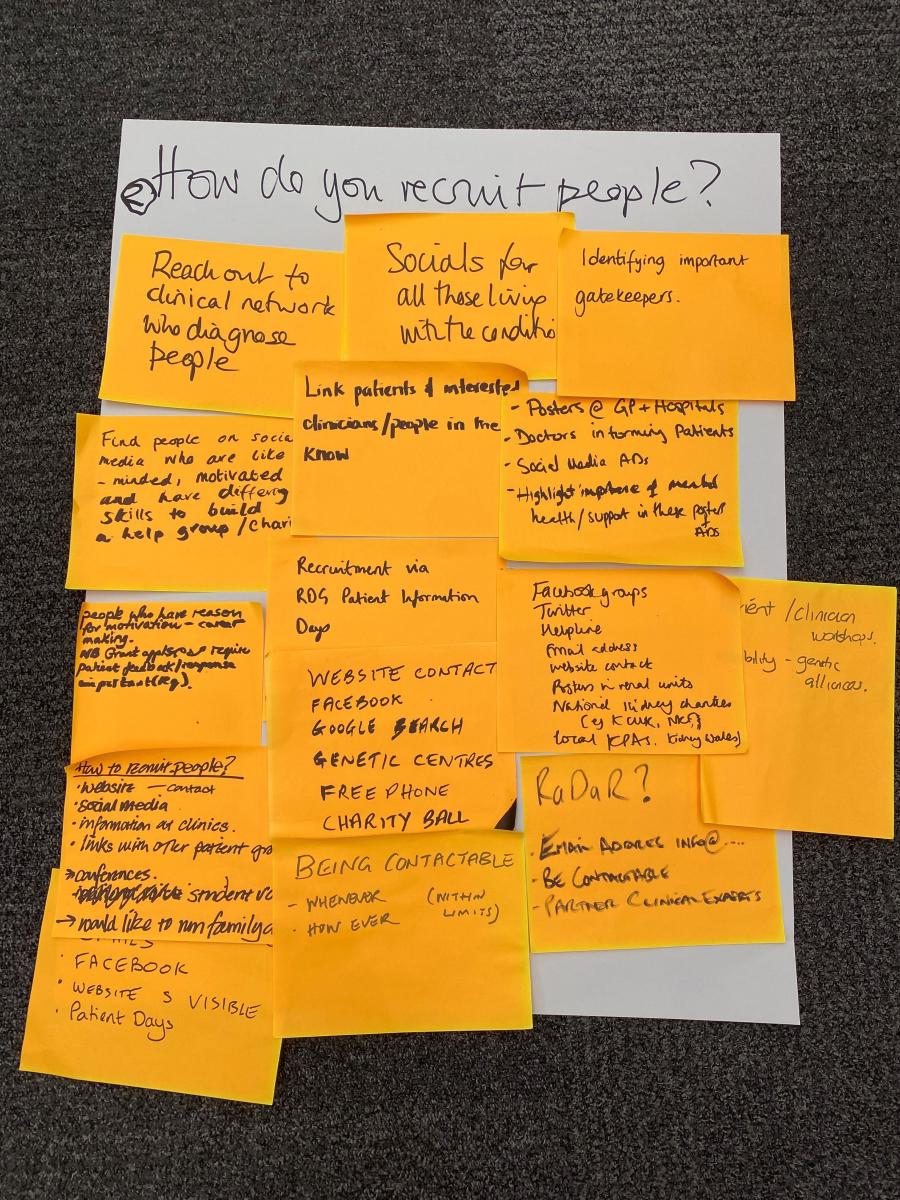 ② How do you recruit people?
Reach out to
clinical network
who diagnose
people
Socials for
all those living
with the conditio
Identifying important
gatekeepers.
Link patients & interested
clinicians/people in the
know
- Posters @ GP + Hospitals
- Doctors informing Patients
- Social Media ADs
- Highlight of mental
health/support in these poster
& ADs
Find people on socia
media who are like
- minded, motivated
and have differing
skills to build
a help group/chari
Recruitment via
RDG Patient Information
Days
Facebook groups
Twitter
Helpline
Email address
Website contact
Posters in renal units
National Kidney charities
(eg KCUK, NKF)
Local KPAs. Kidney Wales)
ient/clinician
workshops.
bility - genetic
alliances.
people who have reason
for motivation - career
making.
NB Grant require
patient feedback/response
important (eg).
WEBSITE CONTACT
FACEBOOK
GOOGLE SEARCH
GENETIC CENTRES
FREE PHONE
CHARITY BALL
How to recruit people?
• Website - contact
• Social media
• information at clinics.
• links with other patient gro
→ conferences.
student vo
→ would like to run family d
RaDaR?
- EMAIL ADDRES INFO@....
- BE CONTACTABLE
- PARTNER CLINICAL EXPERTS
BEING CONTACTABLE
- WHENEVER (WITHIN
- HOW EVER LIMITS)
• FACEBOOK
• WEBSITE S VISIBLE
• Patient Days